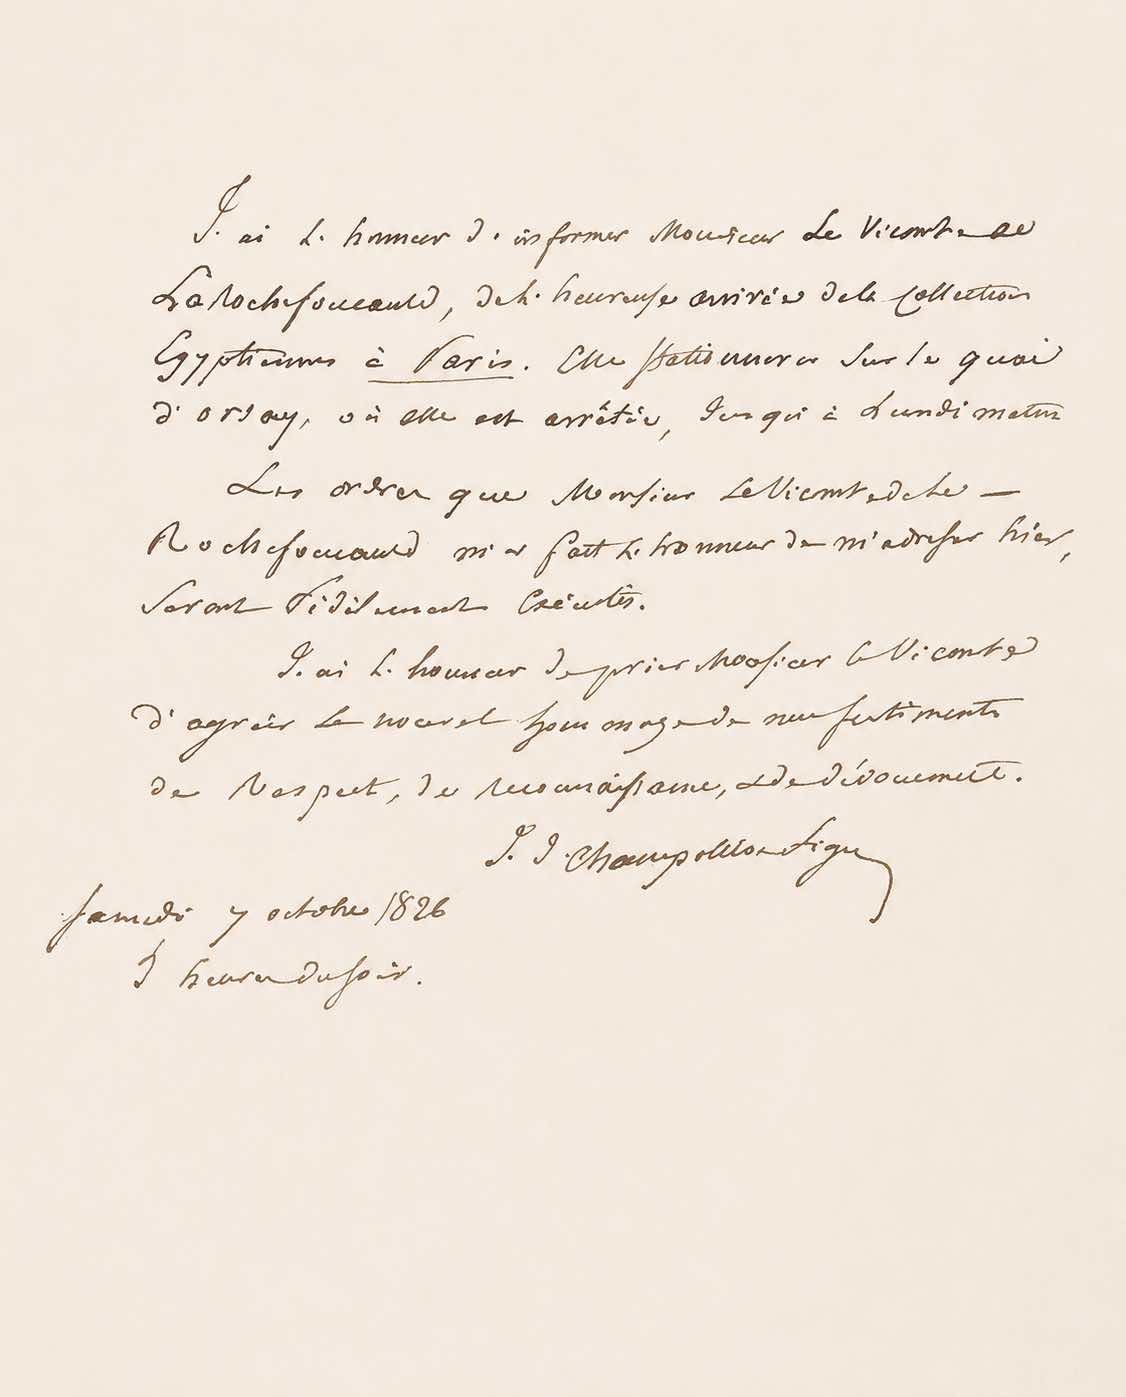 J'ai l'honneur d'informer Monsieur Le Vicomte de
La Rochefoucauld, de l'heureuse arrivée de la Collection
Egyptienne à Paris. Elle stationnera sur le quai
d'orsay, où elle est arrêtée, Jusqu'à Lundi matin
Les ordres que Monsieur Le Vicomte de La —
Rochefoucauld m'a fait l'honneur de m'adresser hier,
seront fidèlement exécutés.
J'ai l'honneur de prier Monsieur le Vicomte
d'agréer le nouvel hommage de mes sentiments
de respect, de reconnaissance, & de dévouement.
J. J. Champollion figeac
samedi 7 octobre 1826
heures du soir.